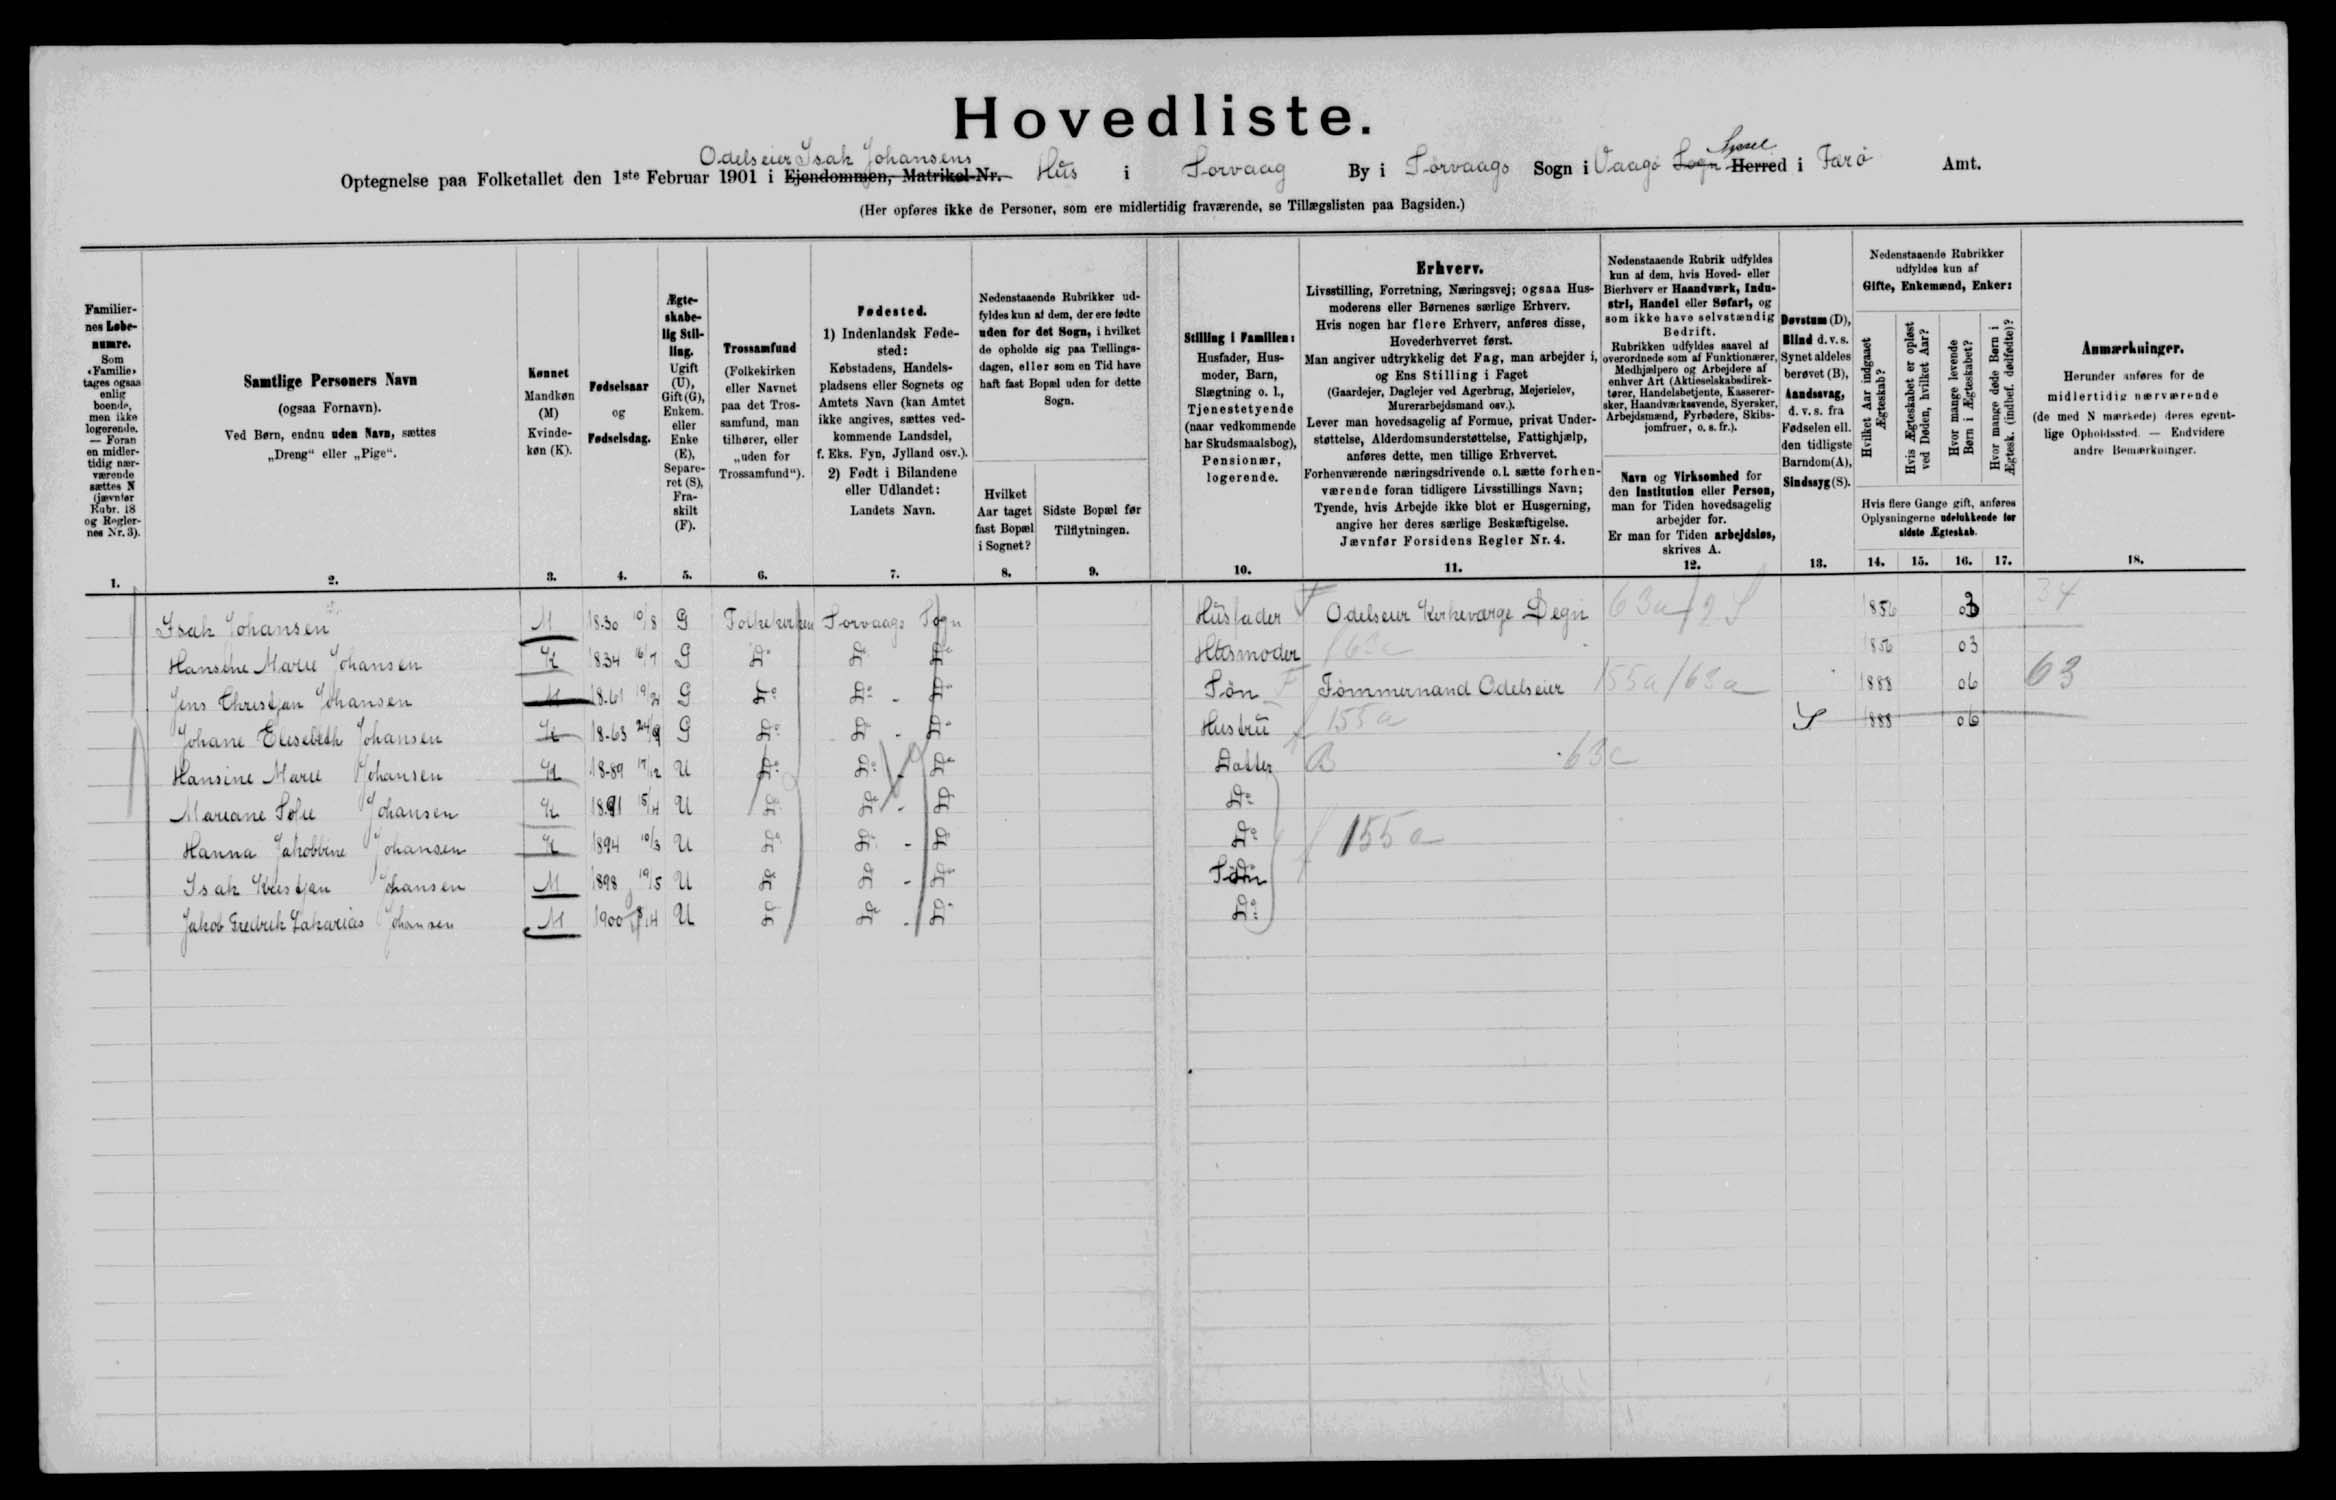 Hovedliste.
Odelseier Isak Johansens
Syssel
Optegnelse paa Folketallet den 1ste Februar 1901 i Ejendommen, Matrikel-Nr. Hus i Sorvaag By i Sorvaags Sogn i Vaagø Sogn Herred i Farø Amt.
(Her opføres ikke de Personer, som ere midlertidig fraværende, se Tillægslisten paa Bagsiden.)
Familiernes Løbenumre.
Som «Familie» tages ogsaa enlig boende, men ikke logerende. — Foran en midlertidig nærværende sættes N (jævnfør Rubr. 18 og Reglernes Nr. 3).
1.
Samtlige Personers Navn
(ogsaa Fornavn).
Ved Børn, endnu uden Navn, sættes
„Dreng“ eller „Pige“.
2.
Kønnet
Mandkøn (M)
Kvindekøn (K).
3.
Fødselsaar
og
Fødselsdag.
4.
Ægteskabelig Stilling.
Ugift (U), Gift (G), Enkem. eller Enke (E), Separeret (S), Fraskilt (F).
5.
Trossamfund
(Folkekirken eller Navnet paa det Trossamfund, man tilhører, eller „uden for Trossamfund“).
6.
Fødested.
1) Indenlandsk Fødested:
Købstadens, Handelspladsens eller Sognets og Amtets Navn (kan Amtet ikke angives, sættes vedkommende Landsdel, f. Eks. Fyn, Jylland osv.).
2) Født i Bilandene eller Udlandet:
Landets Navn.
7.
Nedenstaaende Rubrikker udfyldes kun af dem, der ere fødte uden for det Sogn, i hvilket de opholde sig paa Tællingsdagen, eller som en Tid have haft fast Bopæl uden for dette Sogn.
Hvilket Aar taget fast Bopæl i Sognet?
8.
Sidste Bopæl før Tilflytningen.
9.
Stilling i Familien:
Husfader, Husmoder, Barn, Slægtning o. l., Tjenestetyende (naar vedkommende har Skudsmaalsbog), Pensionær, logerende.
10.
Erhverv.
Livsstilling, Forretning, Næringsvej; ogsaa Husmoderens eller Børnenes særlige Erhverv.
Hvis nogen har flere Erhverv, anføres disse, Hovederhvervet først.
Man angiver udtrykkelig det Fag, man arbejder i, og Ens Stilling i Faget
(Gaardejer, Daglejer ved Agerbrug, Mejerielev, Murerarbejdsmand osv.).
Lever man hovedsagelig af Formue, privat Understøttelse, Alderdomsunderstøttelse, Fattighjælp, anføres dette, men tillige Erhvervet.
Forhenværende næringsdrivende o. l. sætte forhenværende foran tidligere Livsstillings Navn;
Tyende, hvis Arbejde ikke blot er Husgerning, angive her deres særlige Beskæftigelse.
Jævnfør Forsidens Regler Nr. 4.
11.
Nedenstaaende Rubrik udfyldes kun af dem, hvis Hoved- eller Bierhverv er Haandværk, Industri, Handel eller Søfart, og som ikke have selvstændig Bedrift.
Rubrikken udfyldes saavel af overordnede som af Funktionærer, Medhjælpere og Arbejdere af enhver Art (Aktieselskabsdirektører, Handelsbetjente, Kasserersker, Haandværkssvende, Syersker, Arbejdsmænd, Fyrbødere, Skibsjomfruer, o. s. fr.).
Navn og Virksomhed for den Institution eller Person, man for Tiden hovedsagelig arbejder for.
Er man for Tiden arbejdsløs, skrives A.
12.
Døvstum (D),
Blind d. v. s. Synet aldeles berøvet (B),
Aandssvag, d. v. s. fra Fødselen ell. den tidligste Barndom (A),
Sindssyg (S).
13.
Nedenstaaende Rubrikker udfyldes kun af
Gifte, Enkemænd, Enker:
Hvilket Aar indgaaet Ægteskab?
Hvis Ægteskabet er opløst ved Døden, hvilket Aar?
Hvor mange levende Børn i Ægteskabet?
Hvor mange døde Børn i Ægtesk. (indbef. dødfødte)?
Hvis flere Gange gift, anføres Oplysningerne udelukkende for sidste Ægteskab.
14. 15. 16. 17.
Anmærkninger.
Herunder anføres for de midlertidig nærværende (de med N mærkede) deres egentlige Opholdssted. — Endvidere andre Bemærkninger.
18.
Isak Johansen M 1830 10/8 G Folkekirken Sorvaags Sogn Husfader F Odelseier Kirkeværge Degn 63a 1856 34
Hansine Marie Johansen K 1834 16/7 G Do Do Do Husmoder 63c 1856 03
Jens Christjan Johansen M 1861 G Do Do - Do Søn F Tømmermand Odelseier 155a/63a 1888 06 63
Johane Elisebeth Johansen K 1863 24/9 G Do Do - Do Hustru f 155a S 1888 06
Hansine Marie Johansen K 1889 17/12 U Do Do - Do Datter B 63c
Mariane Sofie Johansen K 1891 15/4 U Do Do - Do Do
Hanna Jakobbine Johansen K 1894 10/3 U Do Do - Do Do 155a
Isak Kristjan Johansen M 1898 19/5 U Do Do - Do Søn
Jakob Fredrik Zakarias Johansen M 1900 U Do Do - Do Do